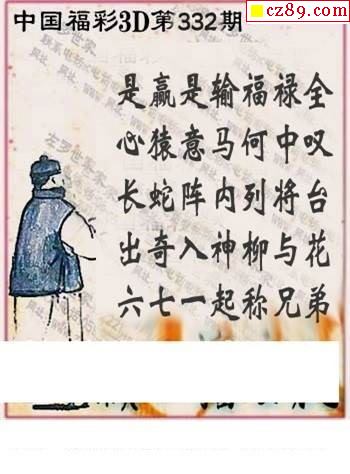 cz89.com
中国福彩3D第332期
是赢是输福禄全
心猿意马何中叹
长蛇阵内列将台
出奇入神柳与花
六七一起称兄弟